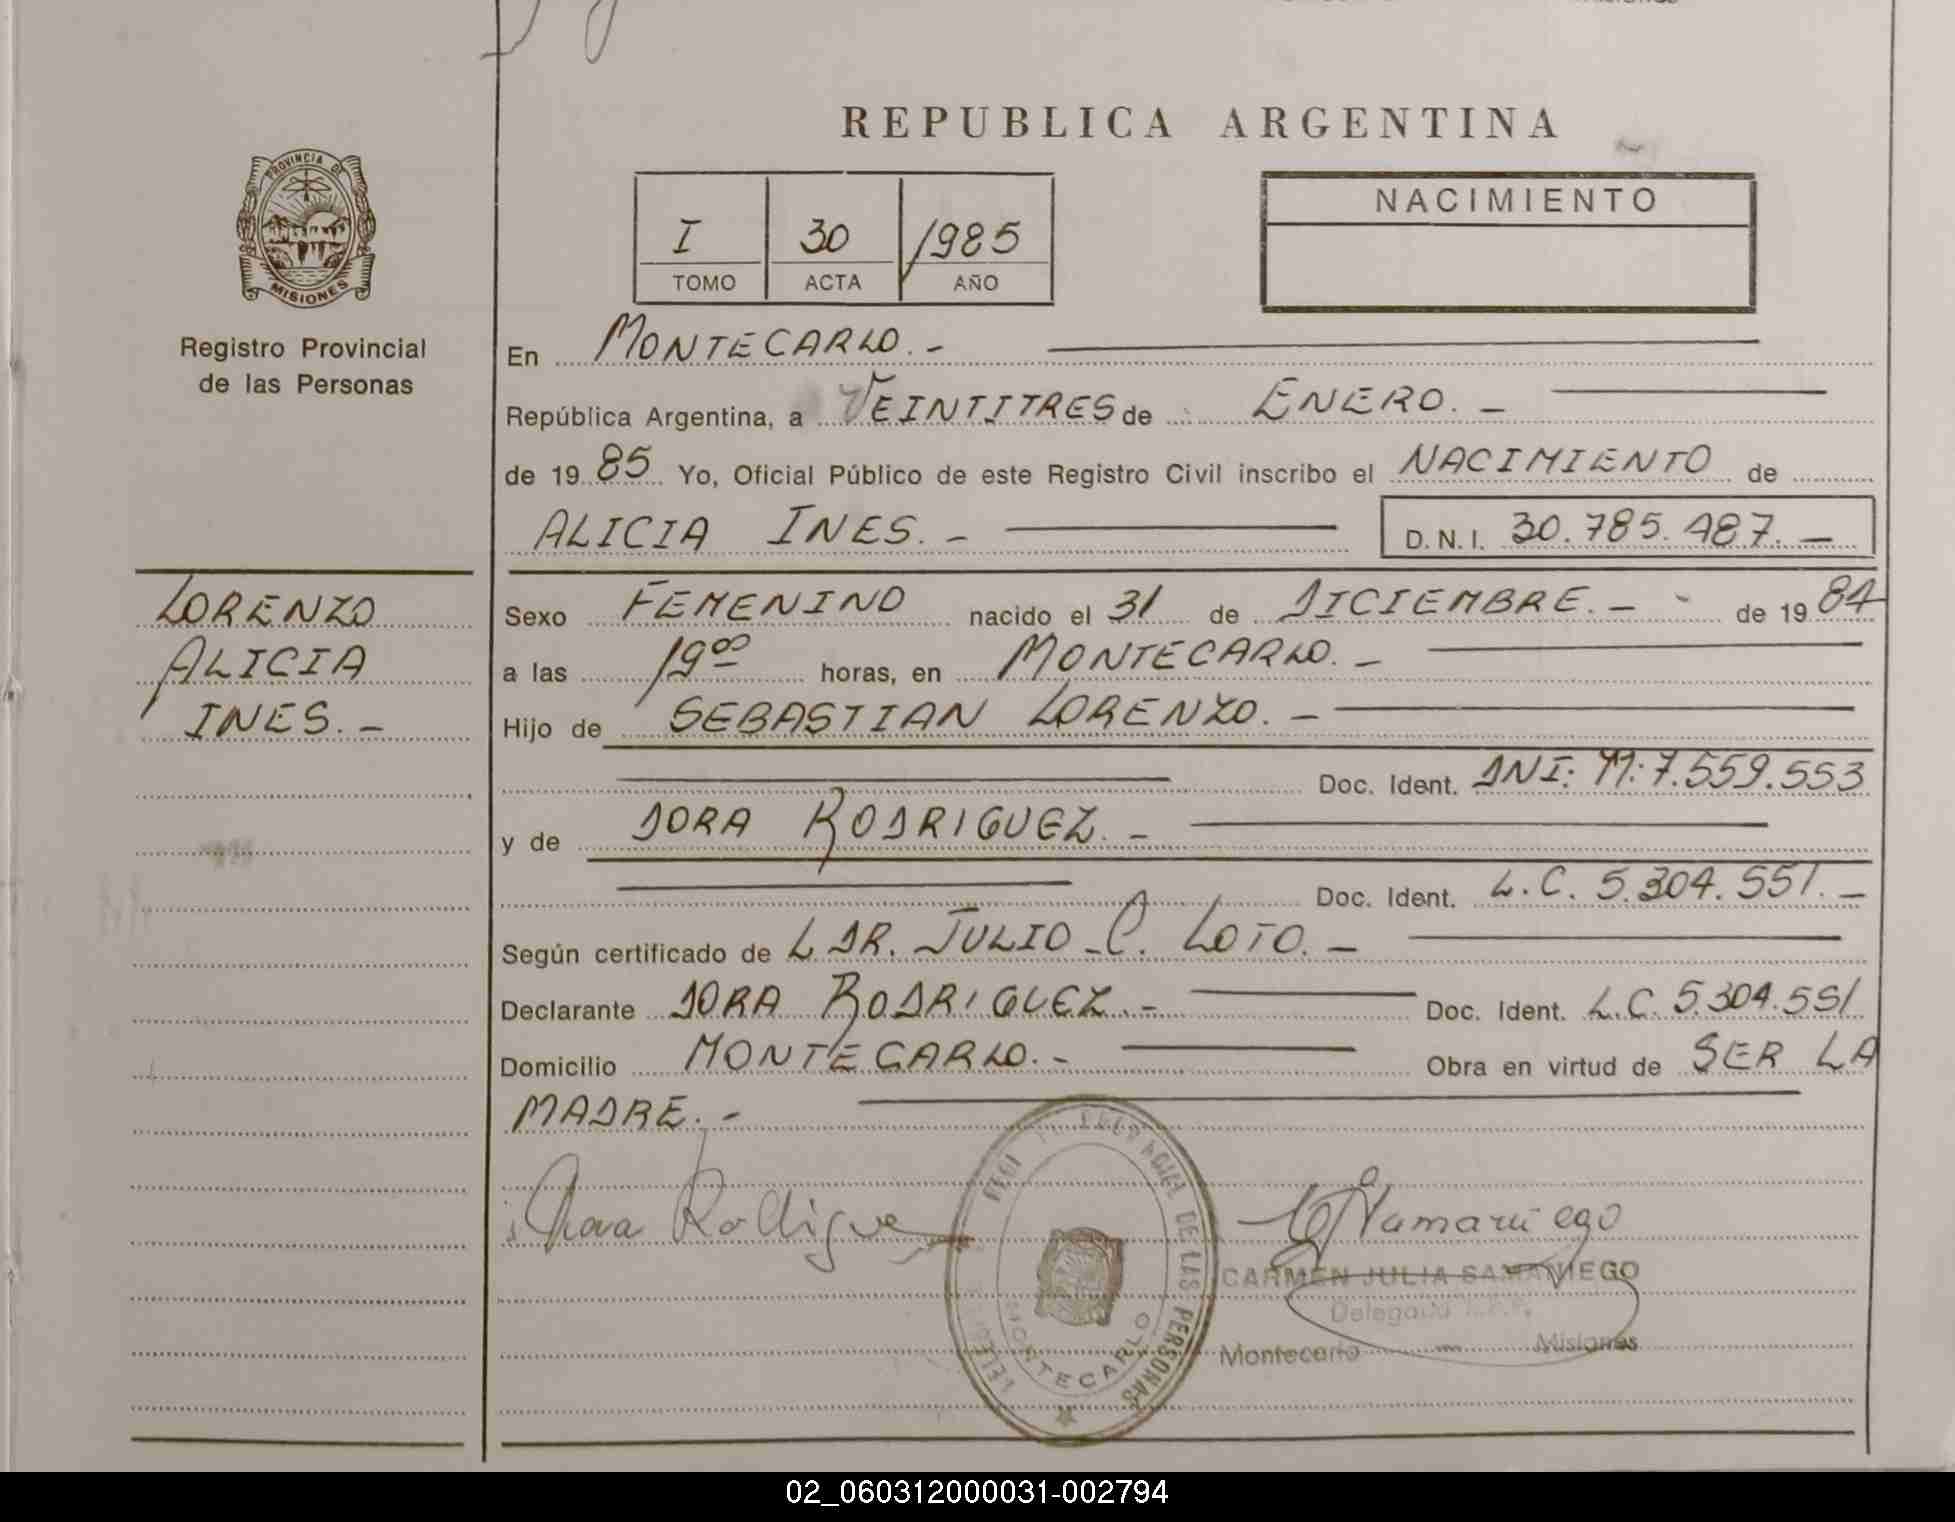 REPUBLICA ARGENTINA
PROVINCIA DE
MISIONES
Registro Provincial
de las Personas
I 30 1985
TOMO ACTA AÑO
NACIMIENTO
En MONTECARLO.-
República Argentina, a VEINTITRES de ENERO.-
de 19 85 Yo, Oficial Público de este Registro Civil inscribo el NACIMIENTO de
ALICIA INES.- D.N.I. 30.785.487.-
LORENZO
ALICIA
INES.-
Sexo FEMENINO nacido el 31 de DICIEMBRE.- de 19 84
a las 19 00 horas, en MONTECARLO.-
Hijo de SEBASTIAN LORENZO.-
Doc. Ident. DNI: M: 7.559.553
y de DORA RODRIGUEZ.-
Doc. Ident. L.C. 5.304.551.-
Según certificado de L DR. JULIO C. LOTO.-
Declarante DORA RODRIGUEZ.- Doc. Ident. L.C. 5.304.551
Domicilio MONTECARLO.- Obra en virtud de SER LA
MADRE.-
Rodriguez
DE LAS PERSONAS
MONTECARLO
CARMEN JULIA SAMANIEGO
Delegada
Montecarlo Misiones
02_060312000031-002794